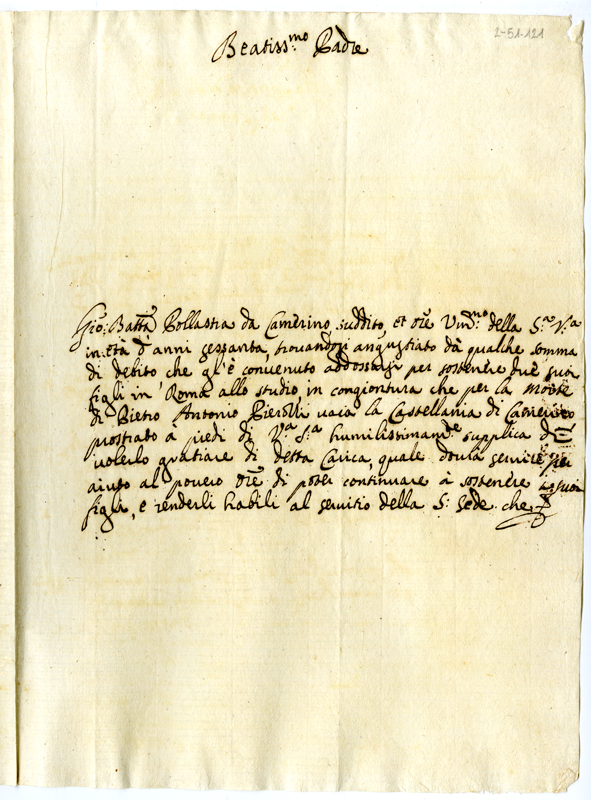 2-51-121
Beatiss.mo Padre
Gio: Batta Pollastra da Camerino suddito, et Ore Um.mo della S.a V.a
in età d'anni sessanta, trovandosi angustiato da qualche somma
di debito che gl'è convenuto addossarsi per sostenere due suoi
figli in Roma allo studio, in congiontura che per la morte
di Pietro Antonio Pierotti vaca la Castellania di Camerino
prostrato à piedi di V.a S.a humilissimam.te supplica di
volerlo gratiare di detta Carica, quale dovrà servire per
aiuto al povero Ore di poter continuare à sostenere i suoi
figli, e renderli habili al servitio della S. Sede. che